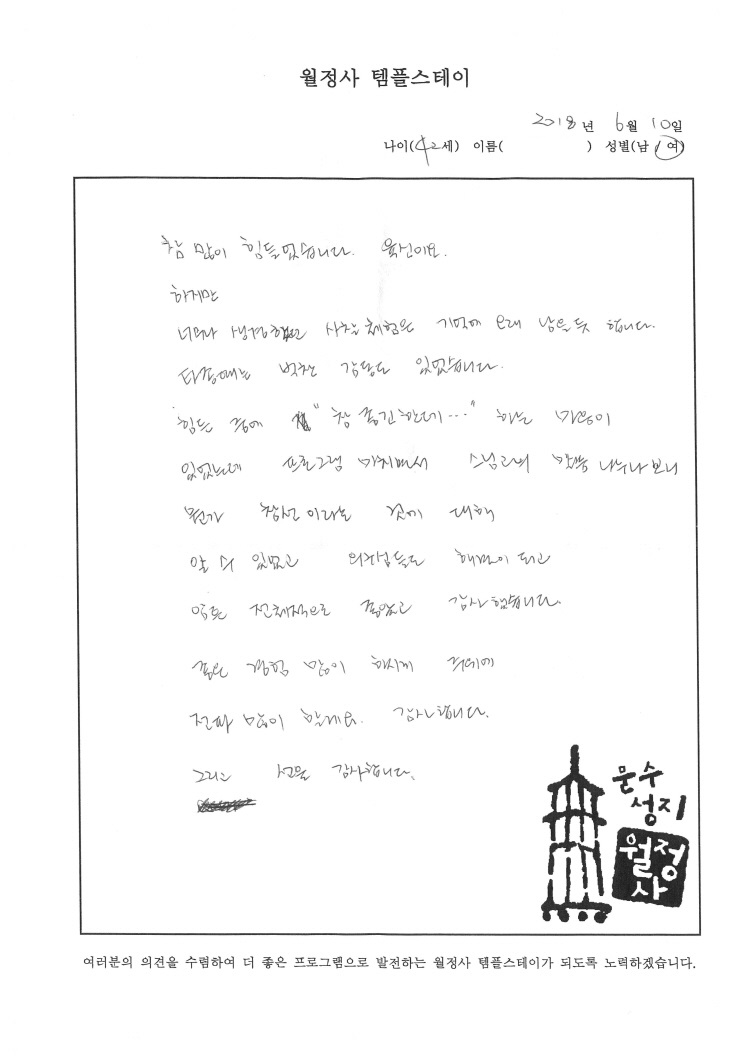 월정사 템플스테이
2018년 6월 10일
나이(42세) 이름( ) 성별(남, 여)
참 많이 힘들었습니다. 육신이요.
하지만
너무나 생경했던 사찰체험은 기억에 오래 남을듯 합니다.
타종때는 벅찬 감동도 있었습니다.
힘든 중에 "참 좋긴한데..." 하는 마음이
있었는데 프로그램 마치면서 스님과의 나누다 보니
뭔가 참선이라는 것에 대해
알 수 있었고 의구심들도 해명이 되고
암튼 전체적으로 좋았고 감사했습니다.
좋은 경험 많이 하시게 주위에
전파 많이 할게요. 감사합니다.
그리고 선물 감사합니다.
문수
성지
월정
사
여러분의 의견을 수렴하여 더 좋은 프로그램으로 발전하는 월정사 템플스테이가 되도록 노력하겠습니다.